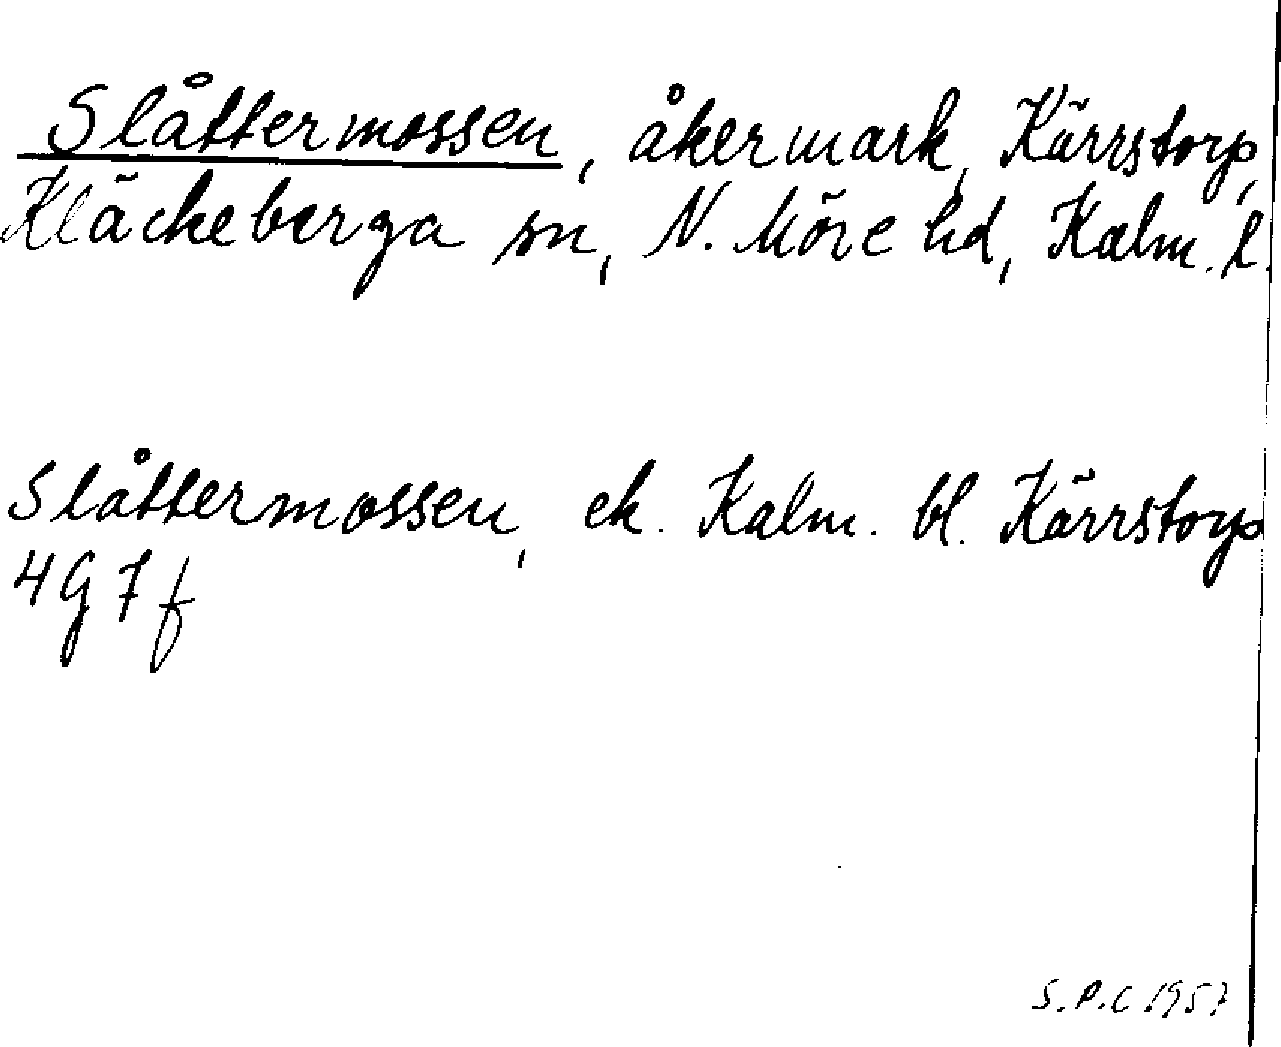 Slåttermossen, åkermark, Kärrstorp,
Kläckeberga sn, N. Möre hd, Kalm. l.
Slåttermossen, ek. Kalm. bl. Kärrstorp
4G7f
S.P.C. 1957